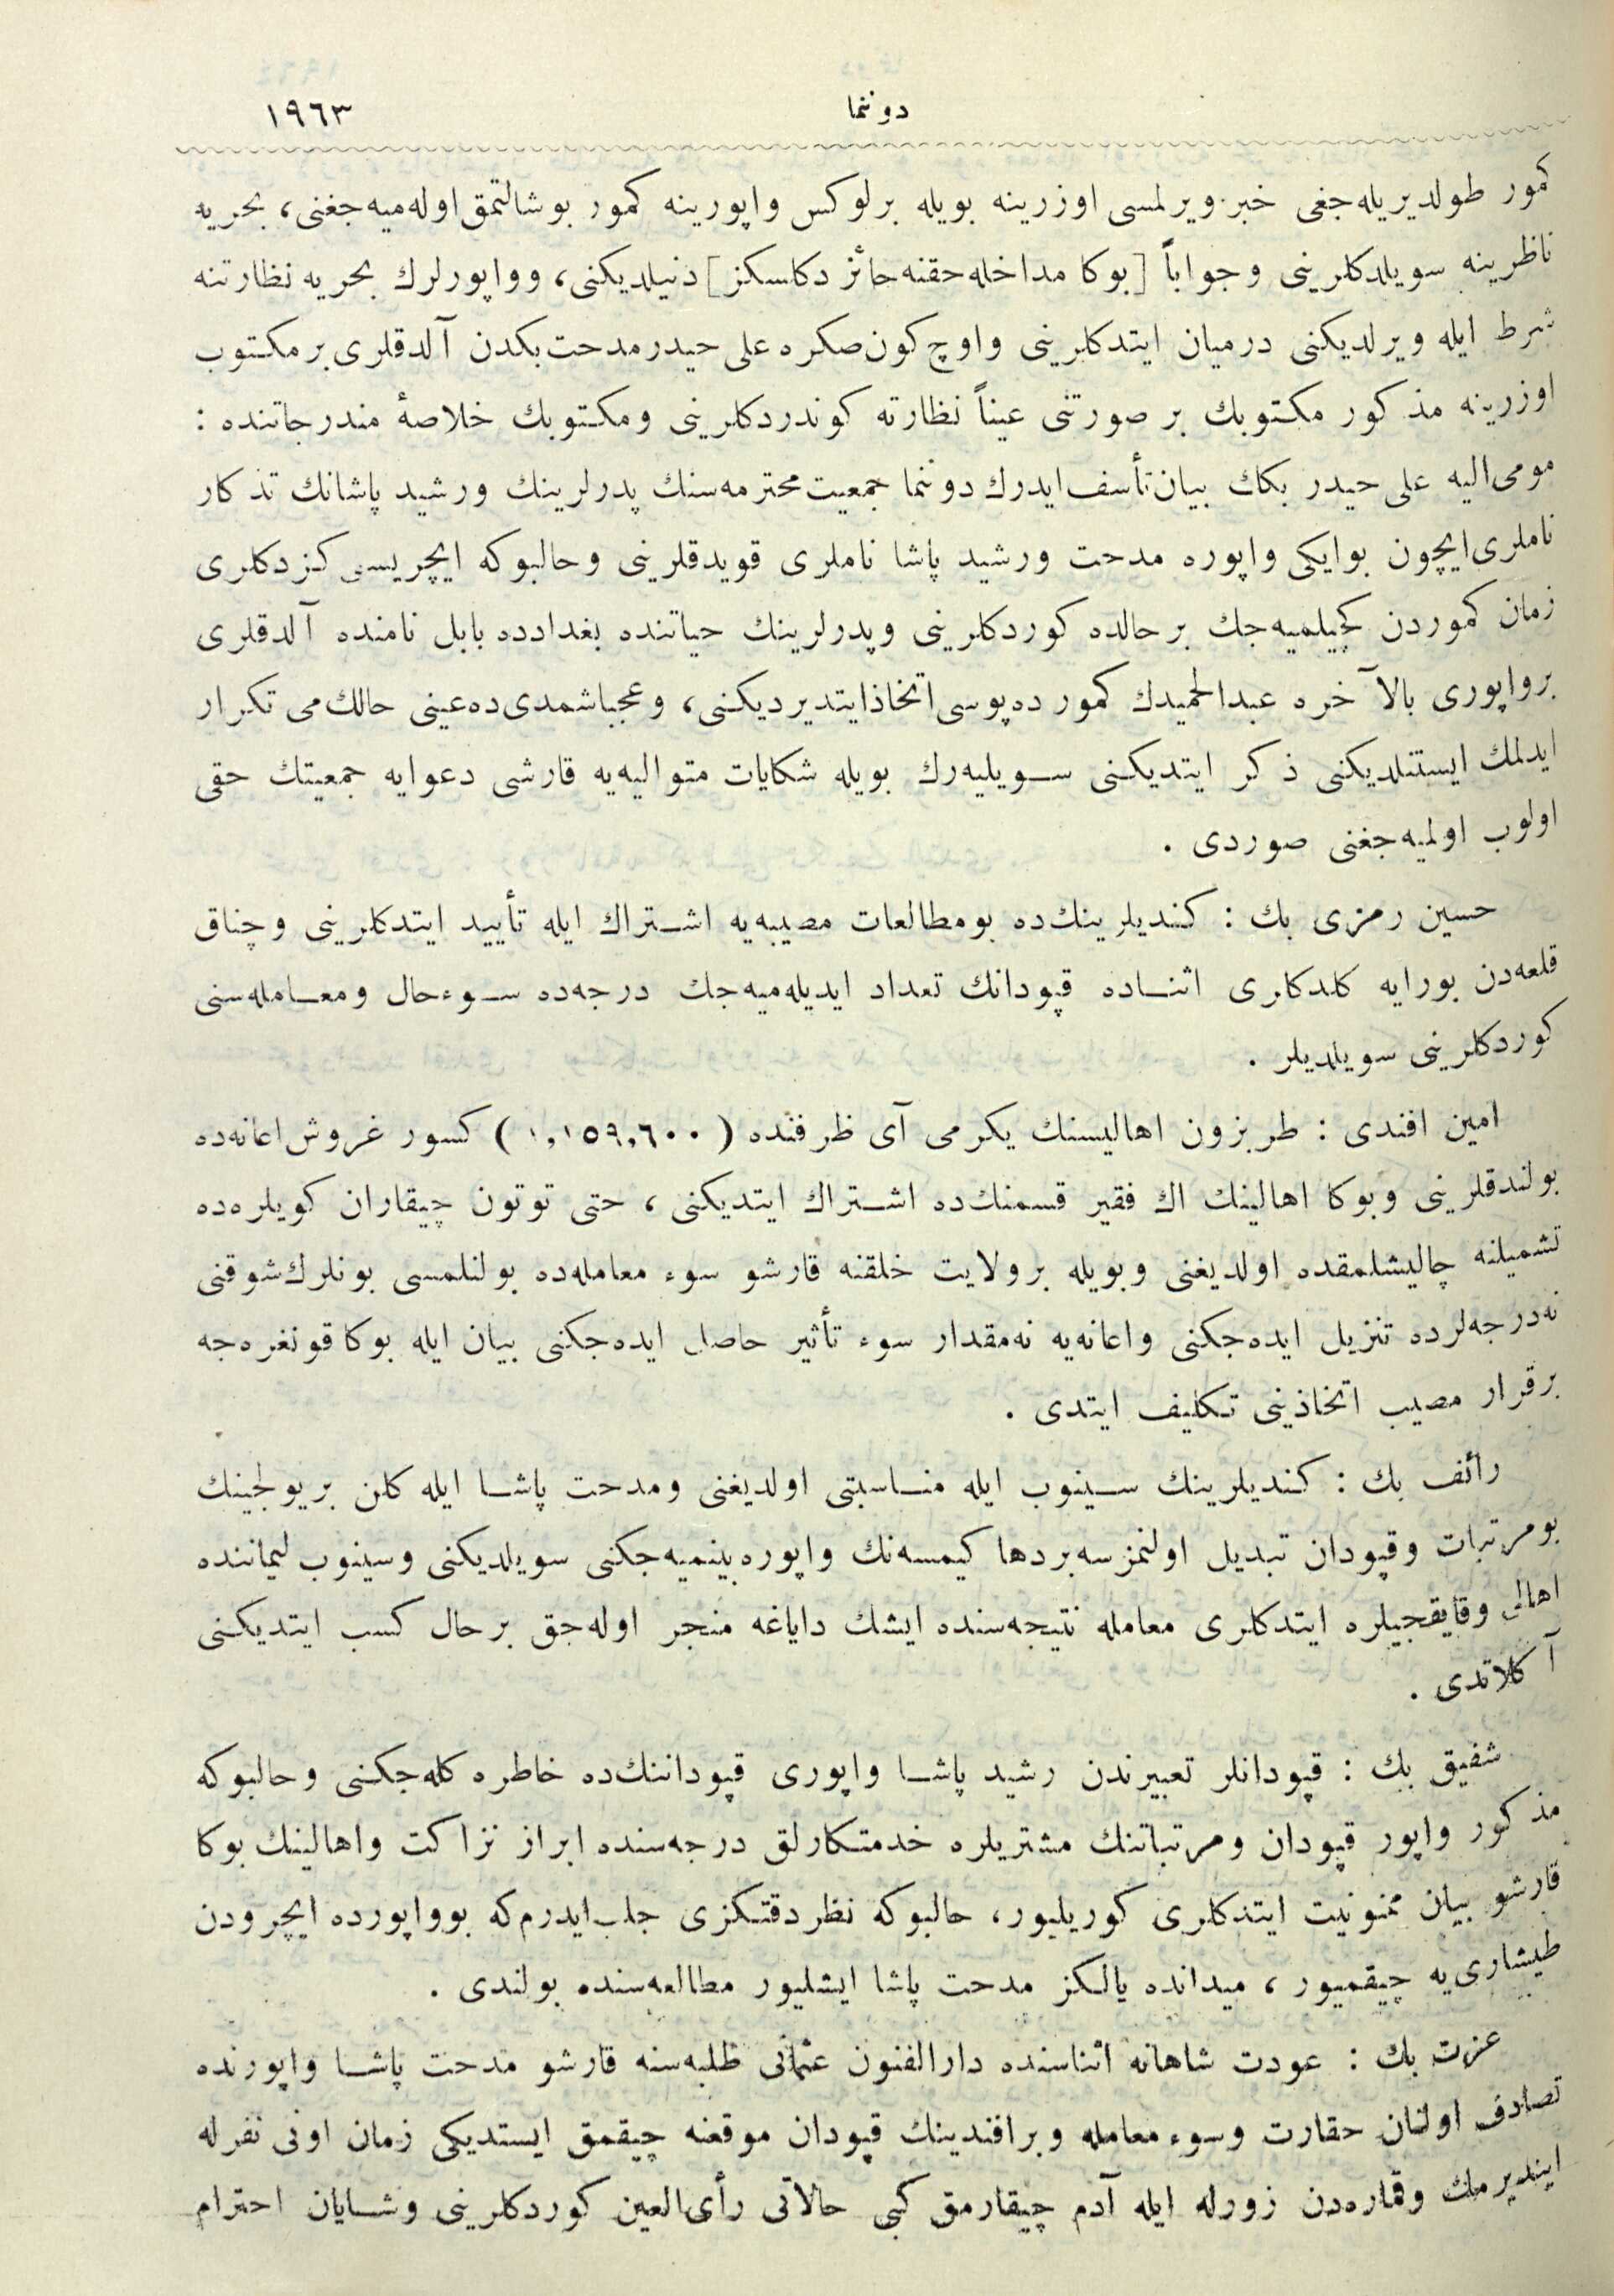 دوننما
١٩٦٣
كمور طولديريله‌جغی خبر ويرلمسی اوزرينه بويله برلوكس واپورينه كمور بوشالتمق اوله‌ميه‌جغنی، بحريه
ناظرينه سويلدكلرينی وجواباً [بوكا مداخله حقنه حائز دكلسكز] دنيلديكنی، وواپورلرك بحريه نظارتنه
شرط ايله ويرلديكنی درميان ايتدكلرينی واوچ كون صكره علی حيدر مدحت بكدن آلدقلری برمكتوب
اوزرينه مذكور مكتوبك بر صورتنی عيناً نظارته كوندردكلرينی ومكتوبك خلاصهٔ مندرجاتنده :
مومی‌اليه علی حيدر بكك بيان تأسف ايدرك دوننما جمعيت محترمه‌سنك پدرلرينك ورشيد پاشانك تذكار
ناملری ايچون بوايكی واپوره مدحت ورشيد پاشا ناملری قويدقلرينی وحالبوكه ايچريسی كزدكلری
زمان كموردن كچيلميه‌جك برحالده كوردكلرينی وپدرلرينك حياتنده بغدادده بابل نامنده آلدقلری
برواپوری بالآخره عبدالحميدك كمور ده‌پوسی اتخاذ ايتديرديكنی، وعجبا شمدی ده عينی حالك‌می تكرار
ايدلمك ايستنلديكنی ذكر ايتديكنی سويليه‌رك بويله شكايات متواليه‌يه قارشی دعوايه جمعيتك حقی
اولوب اولميه‌جغنی صوردی .
حسين رمزی بك : كنديلرينك‌ده بومطالعات مصيبه‌يه اشتراك ايله تأييد ايتدكلرينی وچناق
قلعه‌دن بورايه كلدكلری اثناده قپودانك تعداد ايديله‌ميه‌جك درجه‌ده سوءحال ومعامله‌سنی
كوردكلرينی سويلديلر .
امين افندی : طربزون اهاليسنك يكرمی آی ظرفنده (١,١٥٩,٦٠٠) كسور غروش اعانه‌ده
بولندقلرينی وبوكا اهالينك اك فقير قسمنك‌ده اشتراك ايتديكنی ، حتی توتون چيقاران كويلره‌ده
تشميلنه چاليشلمقده اولديغنی وبويله برولايت خلقنه قارشو سوء معامله‌ده بولنلمسی بونلرك شوقنی
نه‌درجه‌لرده تنزيل ايده‌جكنی واعانه‌يه نه‌مقدار سوء تأثير حاصل ايده‌جكنی بيان ايله بوكا قونغره‌جه
برقرار مصيب اتخاذينی تكليف ايتدی .
رائف بك : كنديلرينك سينوب ايله مناسبتی اولديغنی ومدحت پاشا ايله كلن بريولجينك
بومرتبات وقپودان تبديل اولنمزسه بردها كيمسه‌نك واپوره بينميه‌جكنی سويلديكنی وسينوب ليماننده
اهالی وقايقجيلره ايتدكلری معامله نتيجه‌سنده ايشك داياغه منجر اوله‌جق برحال كسب ايتديكنی
آكلاتدی .
شفيق بك : قپودانلر تعبيرندن رشيد پاشا واپوری قپوداننك‌ده خاطره كله‌جكنی وحالبوكه
مذكور واپور قپودان ومرتباتنك مشتريلره خدمتكارلق درجه‌سنده ابراز نزاكت واهالينك بوكا
قارشو بيان ممنونيت ايتدكلری كوريليور، حالبوكه نظر دقتكزی جلب ايدرم كه بوواپورده ايچرودن
طيشاری‌يه چيقميور ، ميدانده يالكز مدحت پاشا ايشليور مطالعه‌سنده بولندی .
عزت بك : عودت شاهانه اثناسنده دارالفنون عثمانی طلبه‌سنه قارشو مدحت پاشا واپورنده
تصادف اولنان حقارت وسوء معامله وبرافندينك قپودان موقعنه چيقمق ايستديكی زمان اونی نفرله
اينديرمك وقماره‌دن زورله ايله آدم چيقارمق كبی حالاتی رأی‌العين كوردكلرينی وشايان احترام